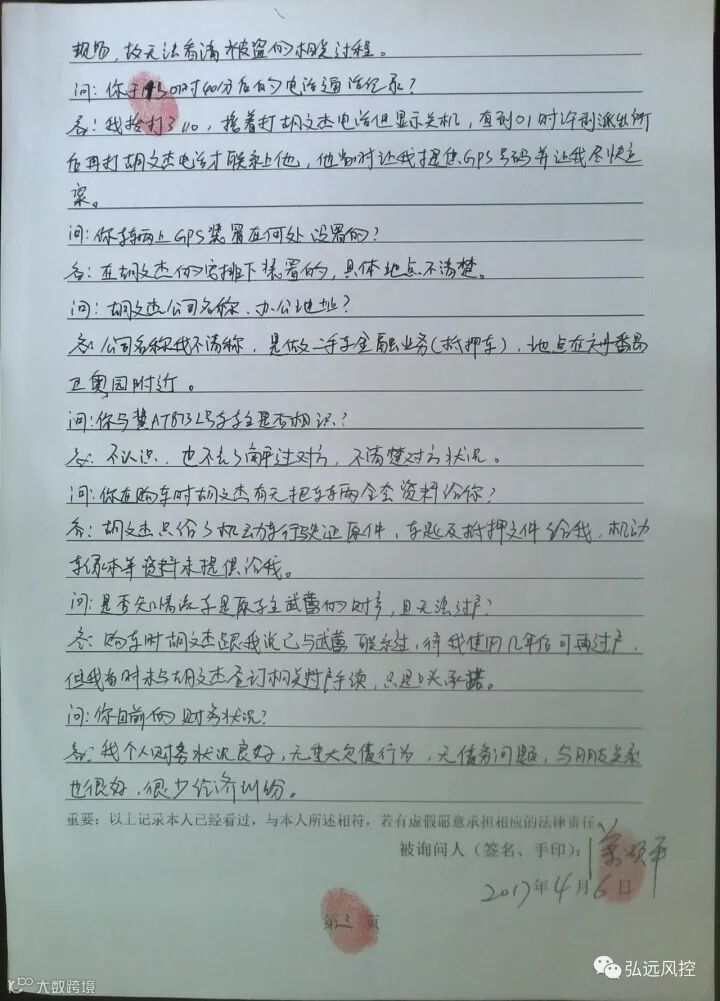 现场，故无法看清被盗的相关过程。
问：你于 01时40分后的电话通话记录？
答：我拨打了110，接着打胡文杰电话但显示关机，直到01时许到派出所
后再打胡文杰电话才联系上他，他当时让我提供GPS号码并让我尽快立
案。
问：你车辆上GPS装置在何处设置的？
答：在胡文杰的安排下装置的，具体地点不清楚。
问：胡文杰公司名称、办公地址？
答：公司名称我不清称，是做二手车金融业务（抵押车），地点在 番禺
区奥园附近。
问：你与冀AT873L号车车主是否相识？
答：不认识，也不去了解过对方，不清楚对方状况。
问：你在购车时胡文杰有无把车车辆全套资料给你？
答：胡文杰只给了机动车行驶证原件、车匙及抵押文件给我，机动
车绿本等资料未提供给我。
问：是否知情该车是原车主武蕾的财产，且无法过户？
答：购车时胡文杰跟我说已与武蕾联系过，待我使用几年后可再过户，
但我当时未与胡文杰签订相关过户手续，只是口头承诺。
问：你目前的财务状况？
答：我个人财务状况良好，无重大欠债行为，无债务问题，与朋友关系
也很好，很少经济纠纷。
重要：以上记录本人已经看过，与本人所述相符，若有虚假愿意承担相应的法律责任。
被询问人（签名、手印）：
2017年4月6日
第三页
大数跨境
弘远风控